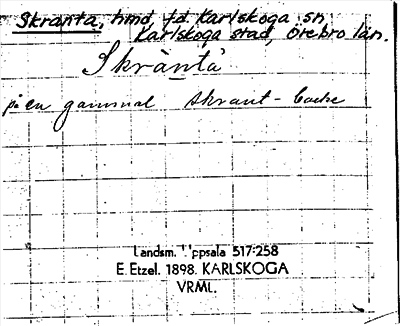 Skranta, hmd, fd. Karlskoga sn,
Karlskoga stad, Örebro län.
Skránta
på en gammal skrant-backe
Landsm. Uppsala 517:258
E. Etzel. 1898. KARLSKOGA
VRML.